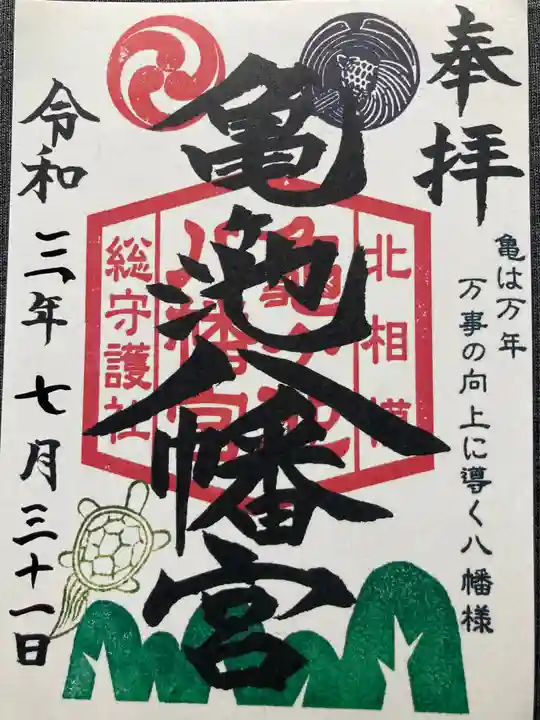 奉拝
亀は万年
万事の向上に導く八幡様
北相模
亀ヶ池
八幡宮
総守護社
亀池八幡宮
令和三年七月三十一日